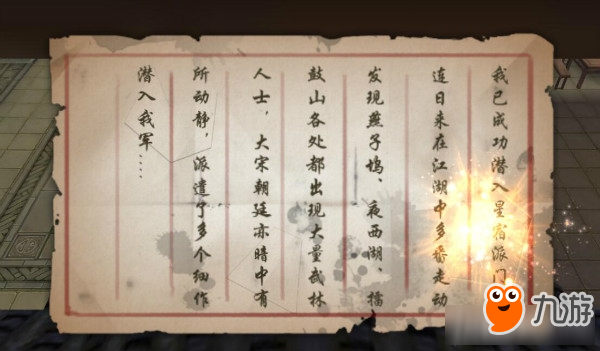 我已成功潜入星宿派门
连日来在江湖中多番走动
发现燕子坞、夜西湖、擂
鼓山各处都出现大量武林
人士，大宋朝廷亦暗中有
所动静，派遣了多个细作
潜入我军....
九游